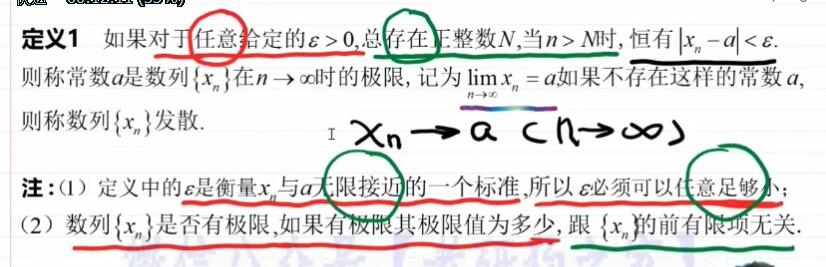 定义1 如果对于任意给定的ε>0,总存在正整数N,当n>N时,恒有|xₙ-a|<ε.
则称常数a是数列{xₙ}在n→∞时的极限,记为lim xₙ=a如果不存在这样的常数a,
n→∞
则称数列{xₙ}发散.
xₙ→a (n→∞)
注:(1) 定义中的ε是衡量xₙ与a无限接近的一个标准,所以ε必须可以任意足够小;
(2) 数列{xₙ}是否有极限,如果有极限其极限值为多少,跟{xₙ}的前有限项无关.